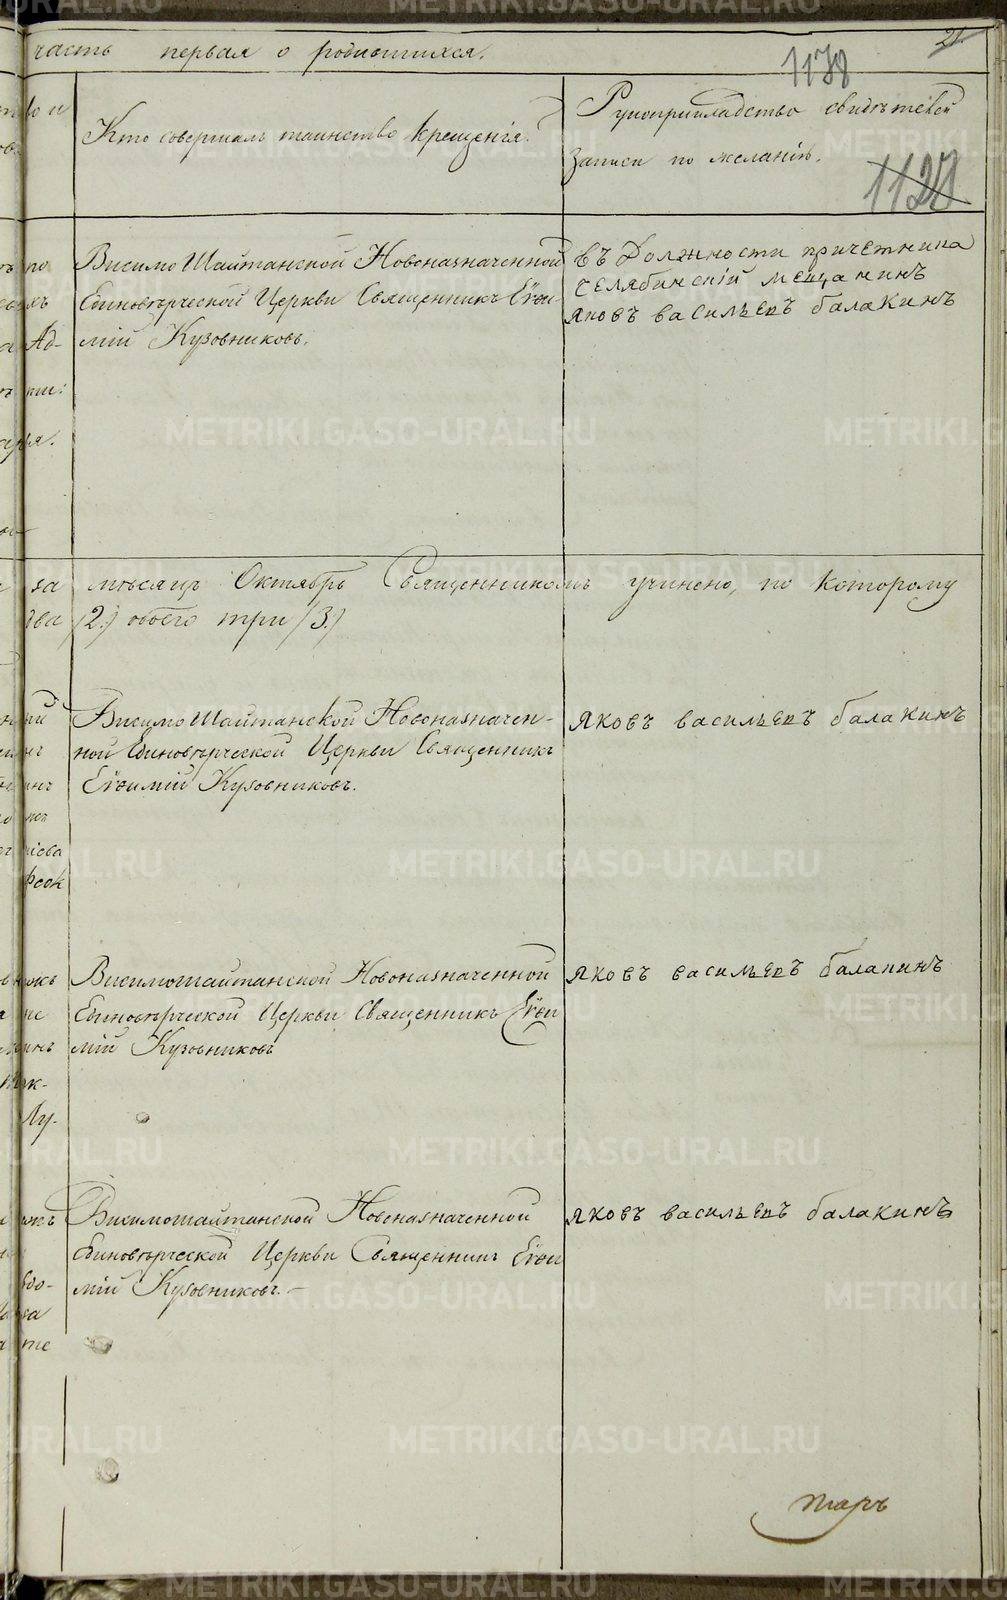 часть первая о родившихся.
21
1178
Кто совершалъ таинство крещенія.
Рукоприкладство свидѣтелей
записи по желанію.
1127
Висимо Шайтанской Новоназначенной
Единовѣрческой Церкви Священникъ Евѳи-
мій Кузовниковъ.
въ Должности причетника
челябинскій мещанинъ
яковъ васильевъ балакинъ
за мѣсяцъ Октябрь Священникомъ учинено, по которому
два /2./ обоего три /3./
Висимо Шайтанской Новоназначен-
ной Единовѣрческой Церкви Священникъ
Евѳимій Кузовниковъ.
яковъ васильевъ балакинъ
Висимошайтанской Новоназначенной
Единовѣрческой Церкви Священникъ Евѳи
мій Кузовниковъ
яковъ васильевъ балакинъ
Висимошайтанской Новоназначенной
Единовѣрческой Церкви Священникъ Евѳи
мій Кузовниковъ.—
яковъ васильевъ балакинъ
METRIKI.GASO-URAL.RU